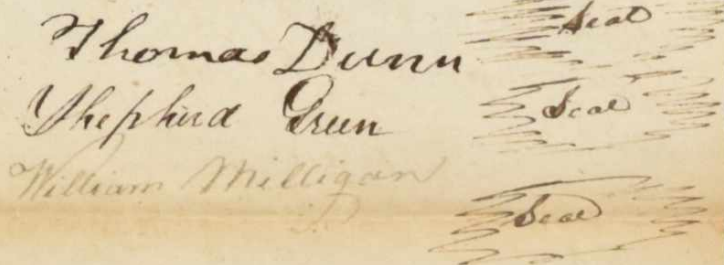 Thomas Dunn Seal
Shepherd Green Seal
William Milligan
Seal